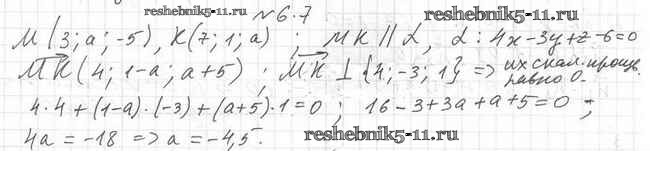 №6.7 reshebnik5-11.ru
M(3; a; -5), K(7; 1; a) ; MK ∥ α, α: 4x-3y+z-6=0
MK(4; 1-a; a+5) ; MK ⊥ {4; -3; 1} => их скал. произв. равно 0.
4·4+(1-a)·(-3)+(a+5)·1=0 ; 16-3+3a+a+5=0 ;
4a = -18 => a = -4,5. reshebnik5-11.ru